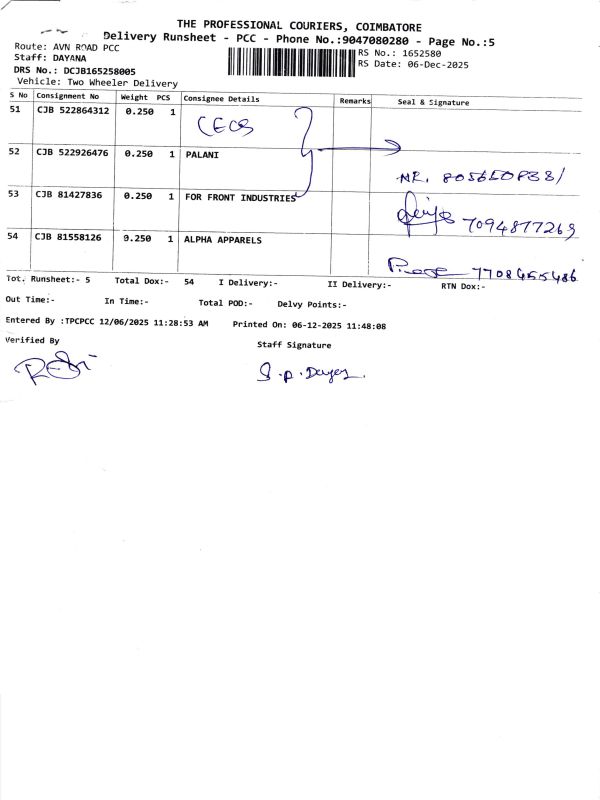 THE PROFESSIONAL COURIERS, COIMBATORE
Delivery Runsheet - PCC - Phone No.:9047080280 - Page No.:5
Route: AVN ROAD PCC
RS No.: 1652580
Staff: DAYANA
RS Date: 06-Dec-2025
DRS No.: DCJB165258005
Vehicle: Two Wheeler Delivery
S No Consignment No Weight PCS Consignee Details Remarks Seal & Signature
51 CJB 522864312 0.250 1
52 CJB 522926476 0.250 1 PALANI
53 CJB 81427836 0.250 1 FOR FRONT INDUSTRIES
7094877269
54 CJB 81558126 0.250 1 ALPHA APPARELS
7708455486
Tot. Runsheet:- 5 Total Dox:- 54 I Delivery:- II Delivery:- RTN Dox:-
Out Time:- In Time:- Total POD:- Delvy Points:-
Entered By :TPCPCC 12/06/2025 11:28:53 AM Printed On: 06-12-2025 11:48:08
Verified By Staff Signature